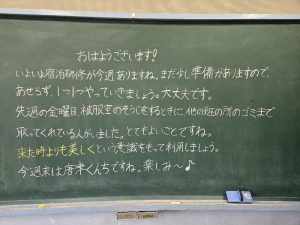 おはようございます!
いよいよ宿泊研修が今週ありますね。まだ少し準備がありますので、
あせらず、1つ1つやっていきましょう。大丈夫です。
先週の金曜日 被服室のそうじをするときに 他の班の所のゴミまで
取ってくれている人がいました。とてもよいことですね。
来た時よりも美しくという意識をもって利用しましょう。
今週末は唐津くんちですね。楽しみ〜♪